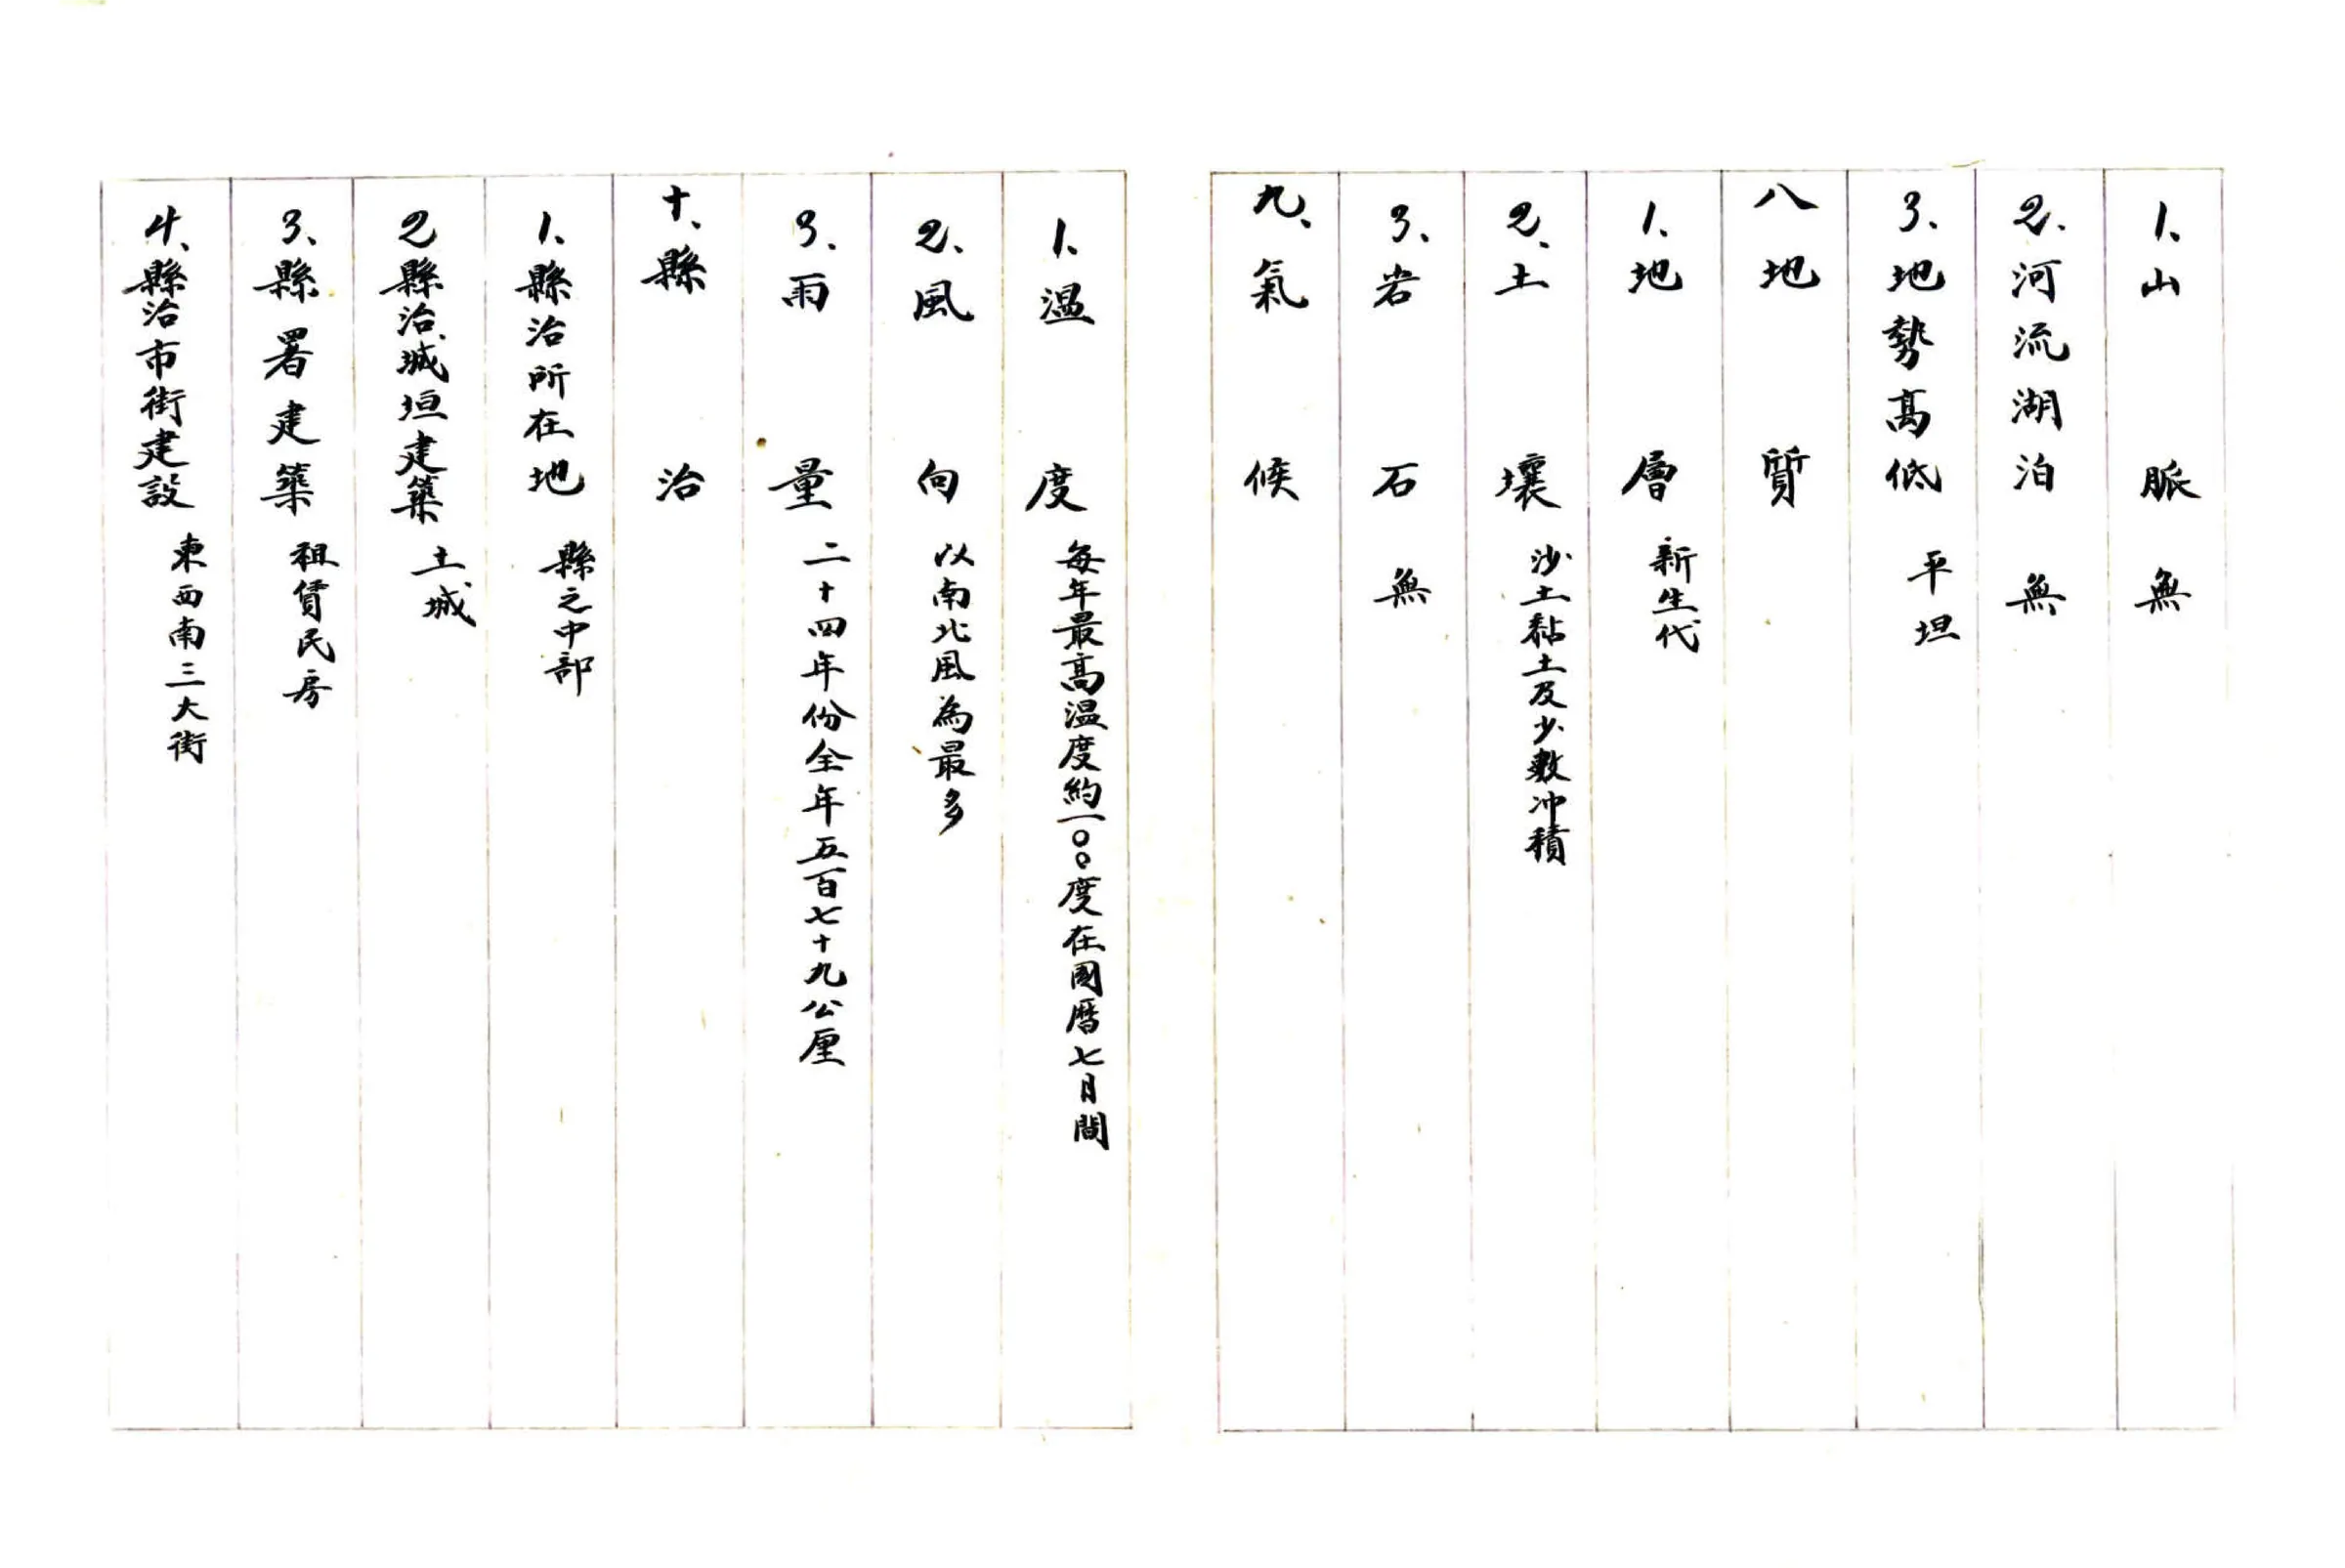 1、山脈 無
2、河流湖泊 無
3、地勢高低 平坦
八 地質
1、地層 新生代
2、土壤 沙土黏土及少數冲積
3、岩石 無
九、氣候
1、温度 每年最高温度約一〇〇度在國曆七月間
2、風向 以南北風為最多
3、雨量 二十四年份全年五百七十九公厘
十、縣治
1、縣治所在地 縣之中部
2 縣治城垣建築 土城
3、縣署建築 租賃民房
4、縣治市街建設 東西南三大街